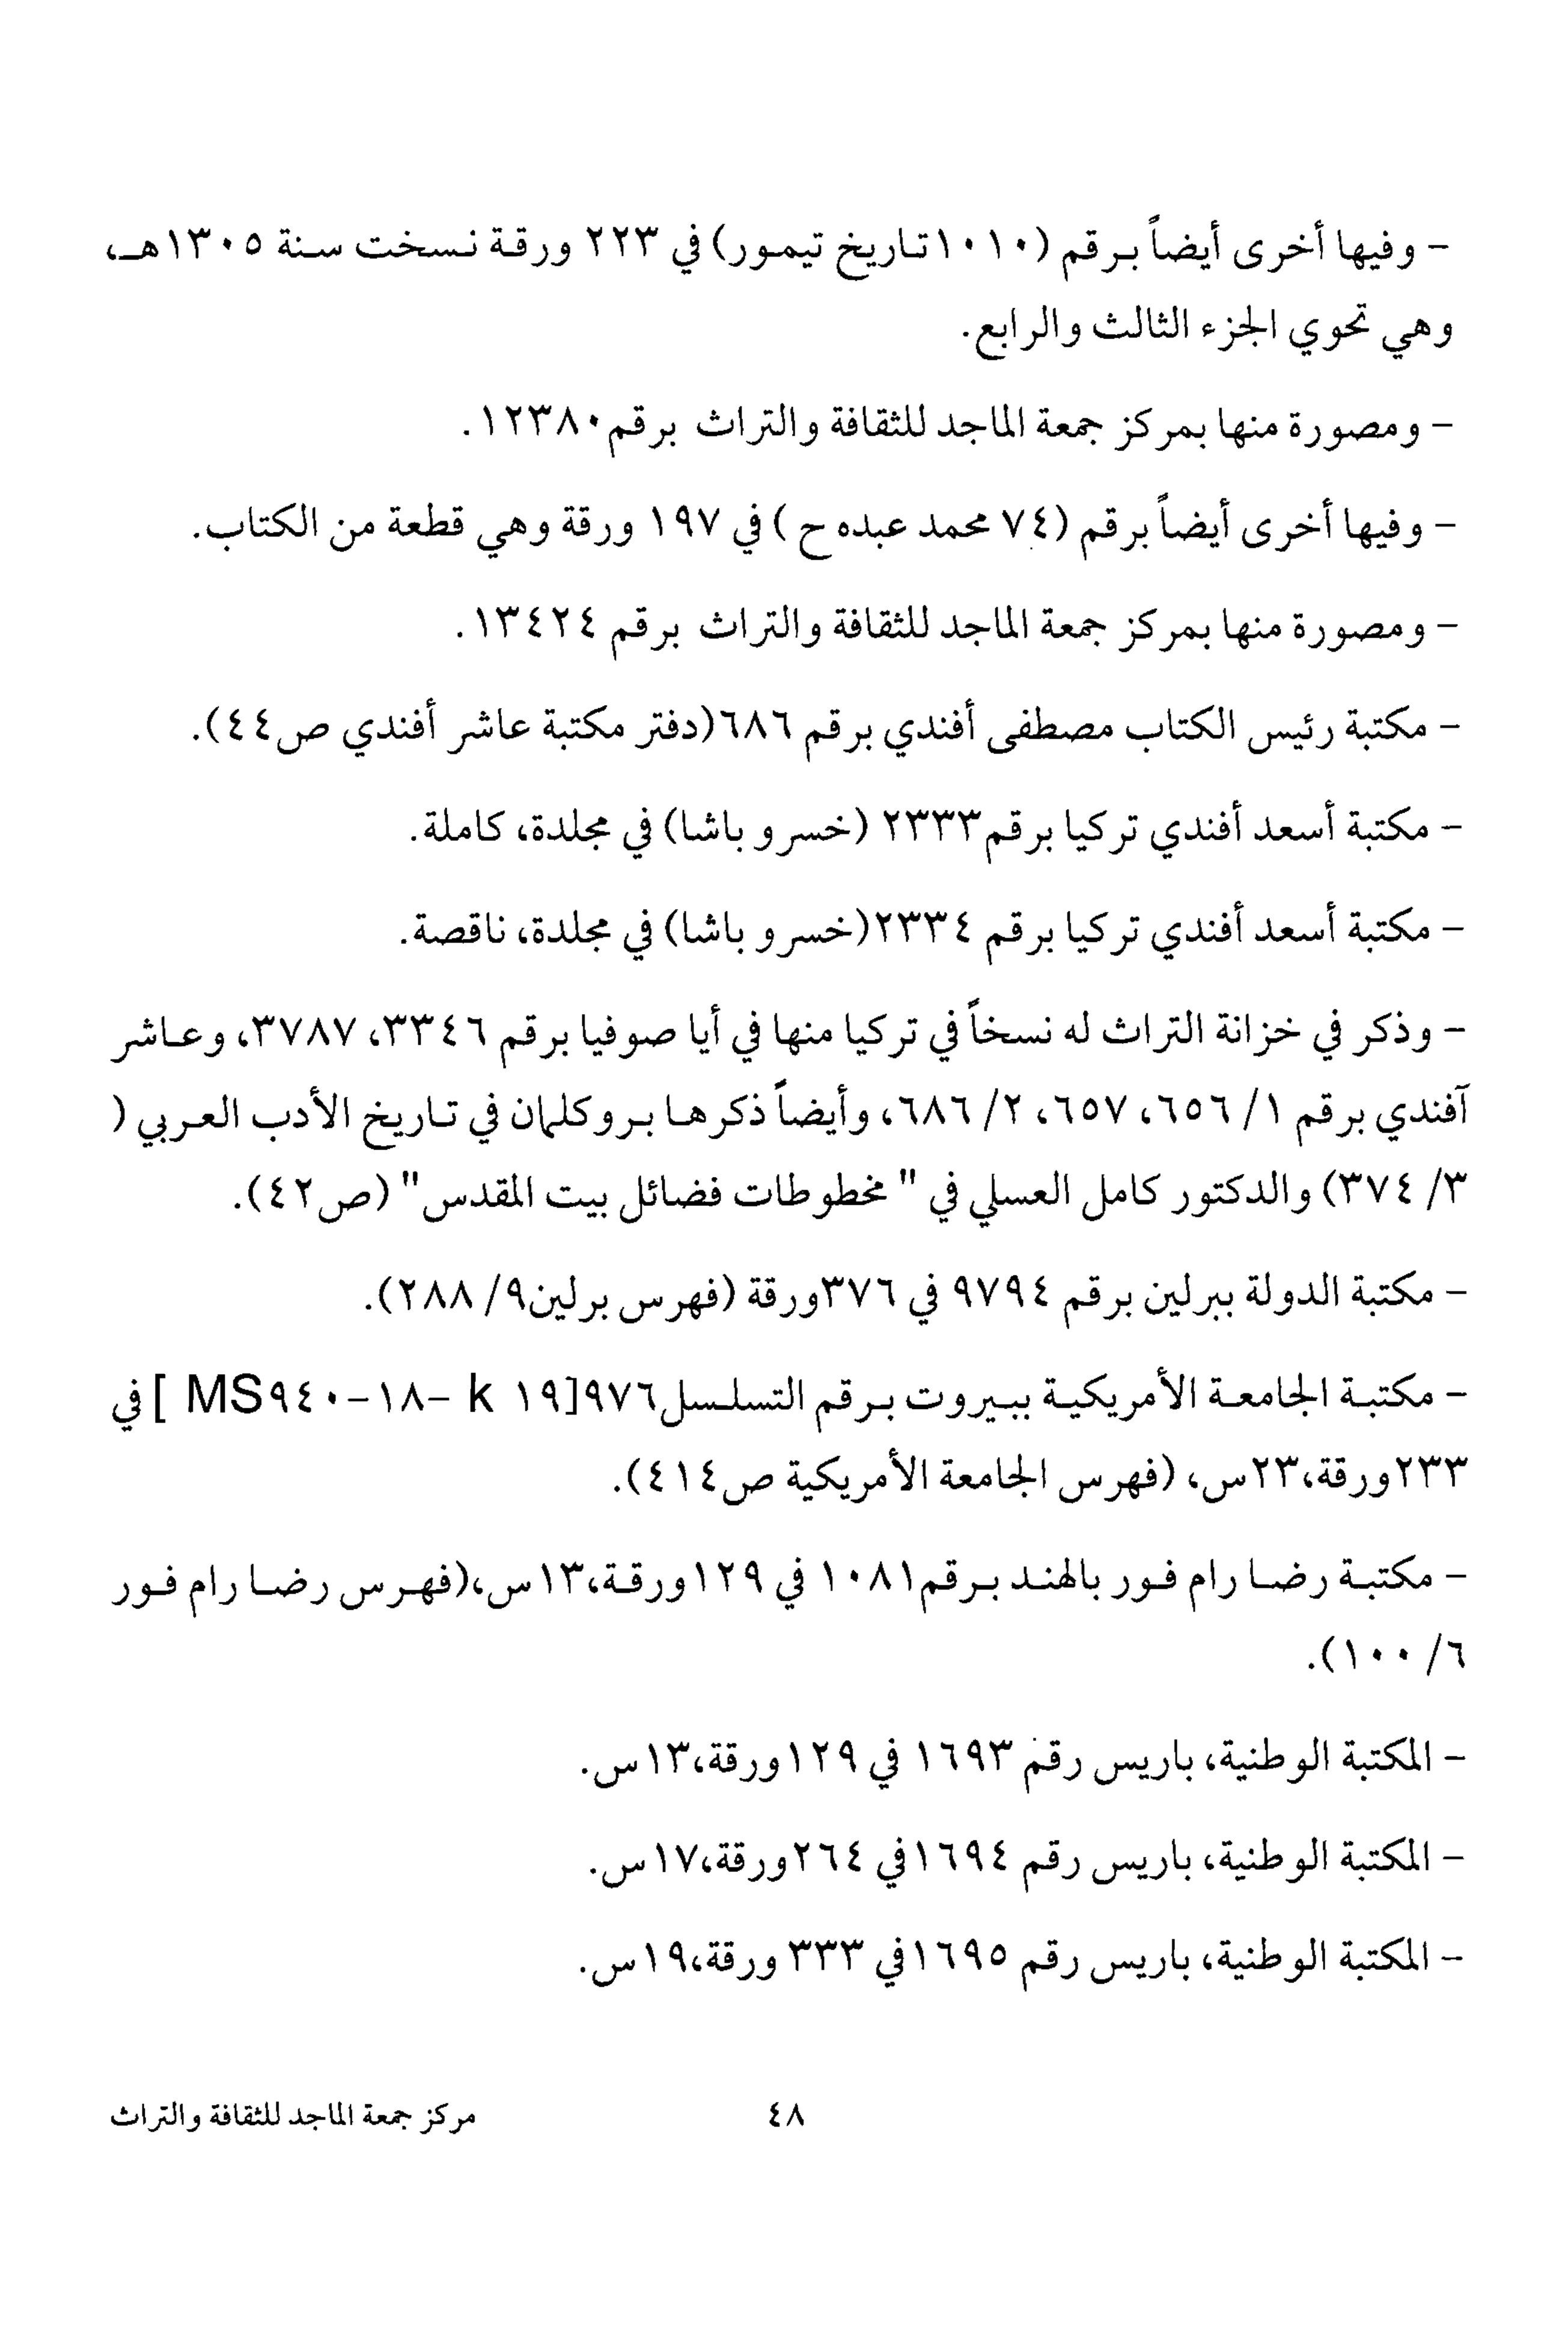 - وفيها أخرى أيضاً برقم (١٠١٠تاريخ تيمور) في ٢٢٣ ورقة نسخت سنة ١٣٠٥هـ،
وهي تحوي الجزء الثالث والرابع.
- ومصورة منها بمركز جمعة الماجد للثقافة والتراث برقم١٢٣٨٠.
- وفيها أخرى أيضاً برقم (٧٤ محمد عبده ح ) في ١٩٧ ورقة وهي قطعة من الكتاب.
- ومصورة منها بمركز جمعة الماجد للثقافة والتراث برقم ١٣٤٢٤.
- مكتبة رئيس الكتاب مصطفى أفندي برقم ٦٨٦(دفتر مكتبة عاشر أفندي ص٤٤).
- مكتبة أسعد أفندي تركيا برقم٢٣٣٣ (خسرو باشا) في مجلدة، كاملة.
- مكتبة أسعد أفندي تركيا برقم ٢٣٣٤(خسرو باشا) في مجلدة، ناقصة.
- وذكر في خزانة التراث له نسخاً في تركيا منها في أيا صوفيا برقم ٣٣٤٦، ٣٧٨٧، وعاشر
آفندي برقم ١/ ٦٥٦، ٦٥٧، ٢/ ٦٨٦، وأيضاً ذكرها بروكلمان في تاريخ الأدب العربي (
٣/ ٣٧٤) والدكتور كامل العسلي في " مخطوطات فضائل بيت المقدس" (ص٤٢).
- مكتبة الدولة ببرلين برقم ٩٧٩٤ في ٣٧٦ورقة (فهرس برلين٩/ ٢٨٨).
- مكتبة الجامعة الأمريكية ببيروت برقم التسلسل٩٧٦[١٩ k -١٨-٩٤٠MS ] في
٢٣٣ورقة،٢٣س، (فهرس الجامعة الأمريكية ص٤١٤).
- مكتبة رضا رام فور بالهند برقم١٠٨١ في ١٢٩ورقة،١٣س،(فهرس رضا رام فور
٦/ ١٠٠).
- المكتبة الوطنية، باريس رقم ١٦٩٣ في ١٢٩ورقة،١٣س.
- المكتبة الوطنية، باريس رقم ١٦٩٤في ٢٦٤ورقة،١٧س.
- المكتبة الوطنية، باريس رقم ١٦٩٥في ٣٣٣ ورقة،١٩س.
٤٨
مركز جمعة الماجد للثقافة والتراث